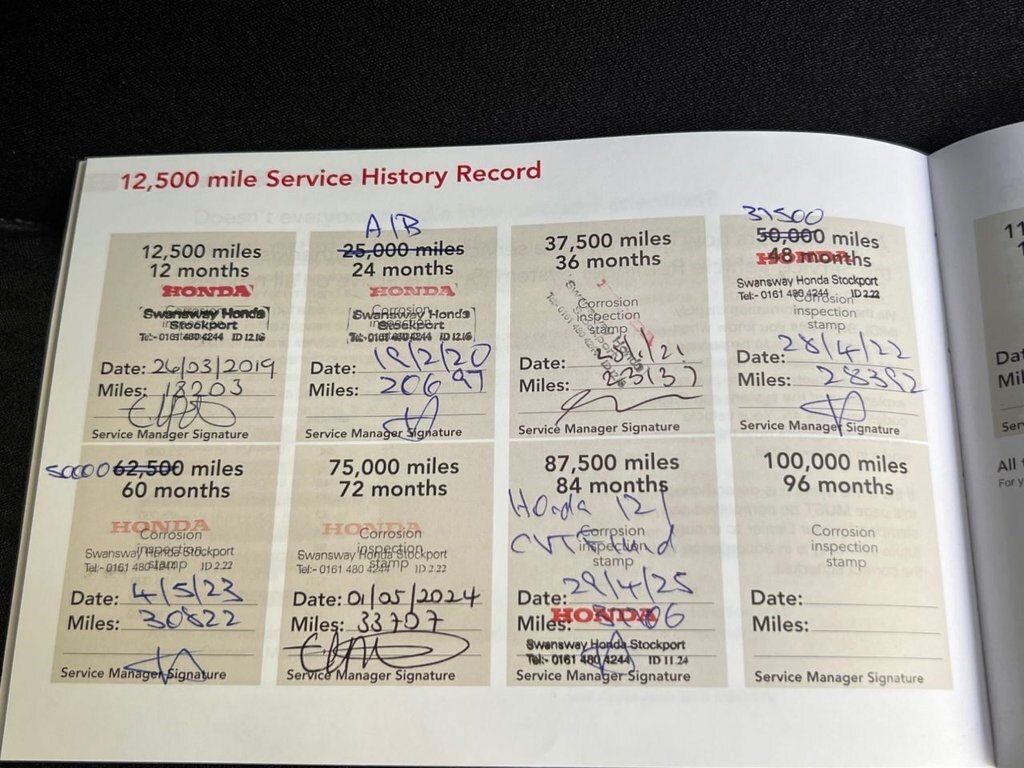 12,500 mile Service History Record
12,500 miles
12 months
HONDA
Corrosion
inspection
stamp
Swansway Honda
Stockport
Tel:- 0161 480 4244 ID 12.16
Date: 26/03/2019
Miles: 18203
Service Manager Signature
A/B
25,000 miles
24 months
HONDA
Corrosion
inspection
stamp
Swansway Honda
Stockport
Tel:- 0161 480 4244 ID 12.16
Date: 19/2/20
Miles: 20697
Service Manager Signature
37,500 miles
36 months
Corrosion
inspection
stamp
Date: /21
Miles: 23137
Service Manager Signature
37500
50,000 miles
48 months
HONDA
Swansway Honda Stockport
Tel:- 0161 480 4244 ID 2.22
Corrosion
inspection
stamp
Date: 28/4/22
Miles: 28392
Service Manager Signature
50000 62,500 miles
60 months
HONDA
Corrosion
inspection
stamp
Swansway Honda Stockport
Tel:- 0161 480 4244 ID 2.22
Date: 4/5/23
Miles: 30822
Service Manager Signature
75,000 miles
72 months
HONDA
Corrosion
inspection
stamp
Swansway Honda Stockport
Tel:- 0161 480 4244 ID 2.22
Date: 01/05/2024
Miles: 33707
Service Manager Signature
87,500 miles
84 months
Honda 12/
CVT Fluid
Corrosion
inspection
stamp
Date: 29/4/25
HONDA
Miles:
Swansway Honda Stockport
Tel:- 0161 480 4244 ID 11.24
Service Manager Signature
100,000 miles
96 months
Corrosion
inspection
stamp
Date:
Miles:
Service Manager Signature